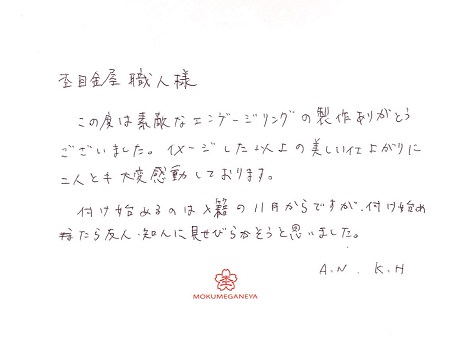 杢目金屋 職人様
この度は素敵なエンゲージリングの製作ありがとう
ございました。イメージした以上の美しい仕上がりに
二人とも大変感動しております。
付け始めるのは入籍の11月からですが、付け始め
たら友人・知人に見せびらかそうと思いました。
A.N. K.H
MOKUMEGANEYA